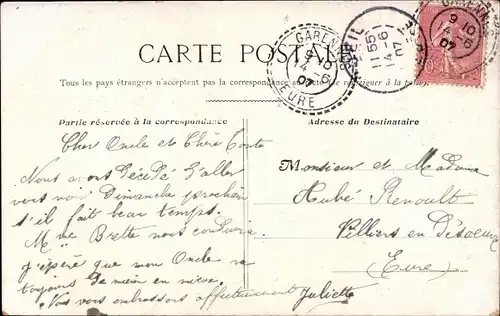 CARTE POSTALE
GARENN
9 10
14-6
07
EURE
11 55
14-6
07
GARENN
9 10
14-6
07
Tous les pays étrangers n'acceptent pas la correspondance au recto
Partie réservée à la correspondance
Adresse du Destinataire
Cher Oncle et Chère Tante
Nous avons décidé d'aller
vous voir Dimanche prochain
s'il fait beau temps.
Mme Brette nous conduira.
j'éspéré que mon Oncle va
toujours de mieux en mieux.
Nous vous embrassons affectueusement Juliette
Monsieur et Madame
Hubé Renoult
Villiers en Désoeuvre
(Eure)